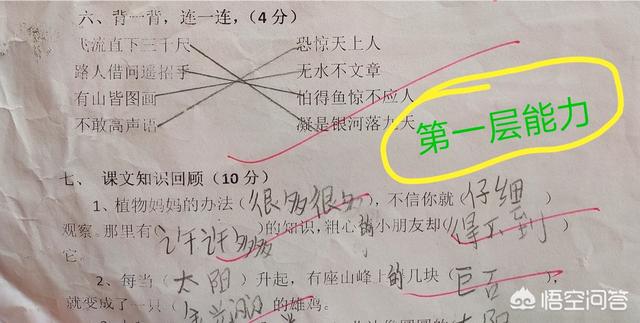 六、背一背，连一连，(4分)
飞流直下三千尺 恐惊天上人
路人借问遥招手 无水不文章
有山皆图画 怕得鱼惊不应人
不敢高声语 凝是银河落九天
第一层能力
七、课文知识回顾(10分)
1、植物妈妈的办法(很多很多)，不信你就(仔细)
观察。那里有(许许多多)的知识，粗心的小朋友却(得不到)
它。
2、每当(太阳)升起，有座山峰上的几块(巨石)
就变成了一只(金光闪闪)的雄鸡。
悟空问答